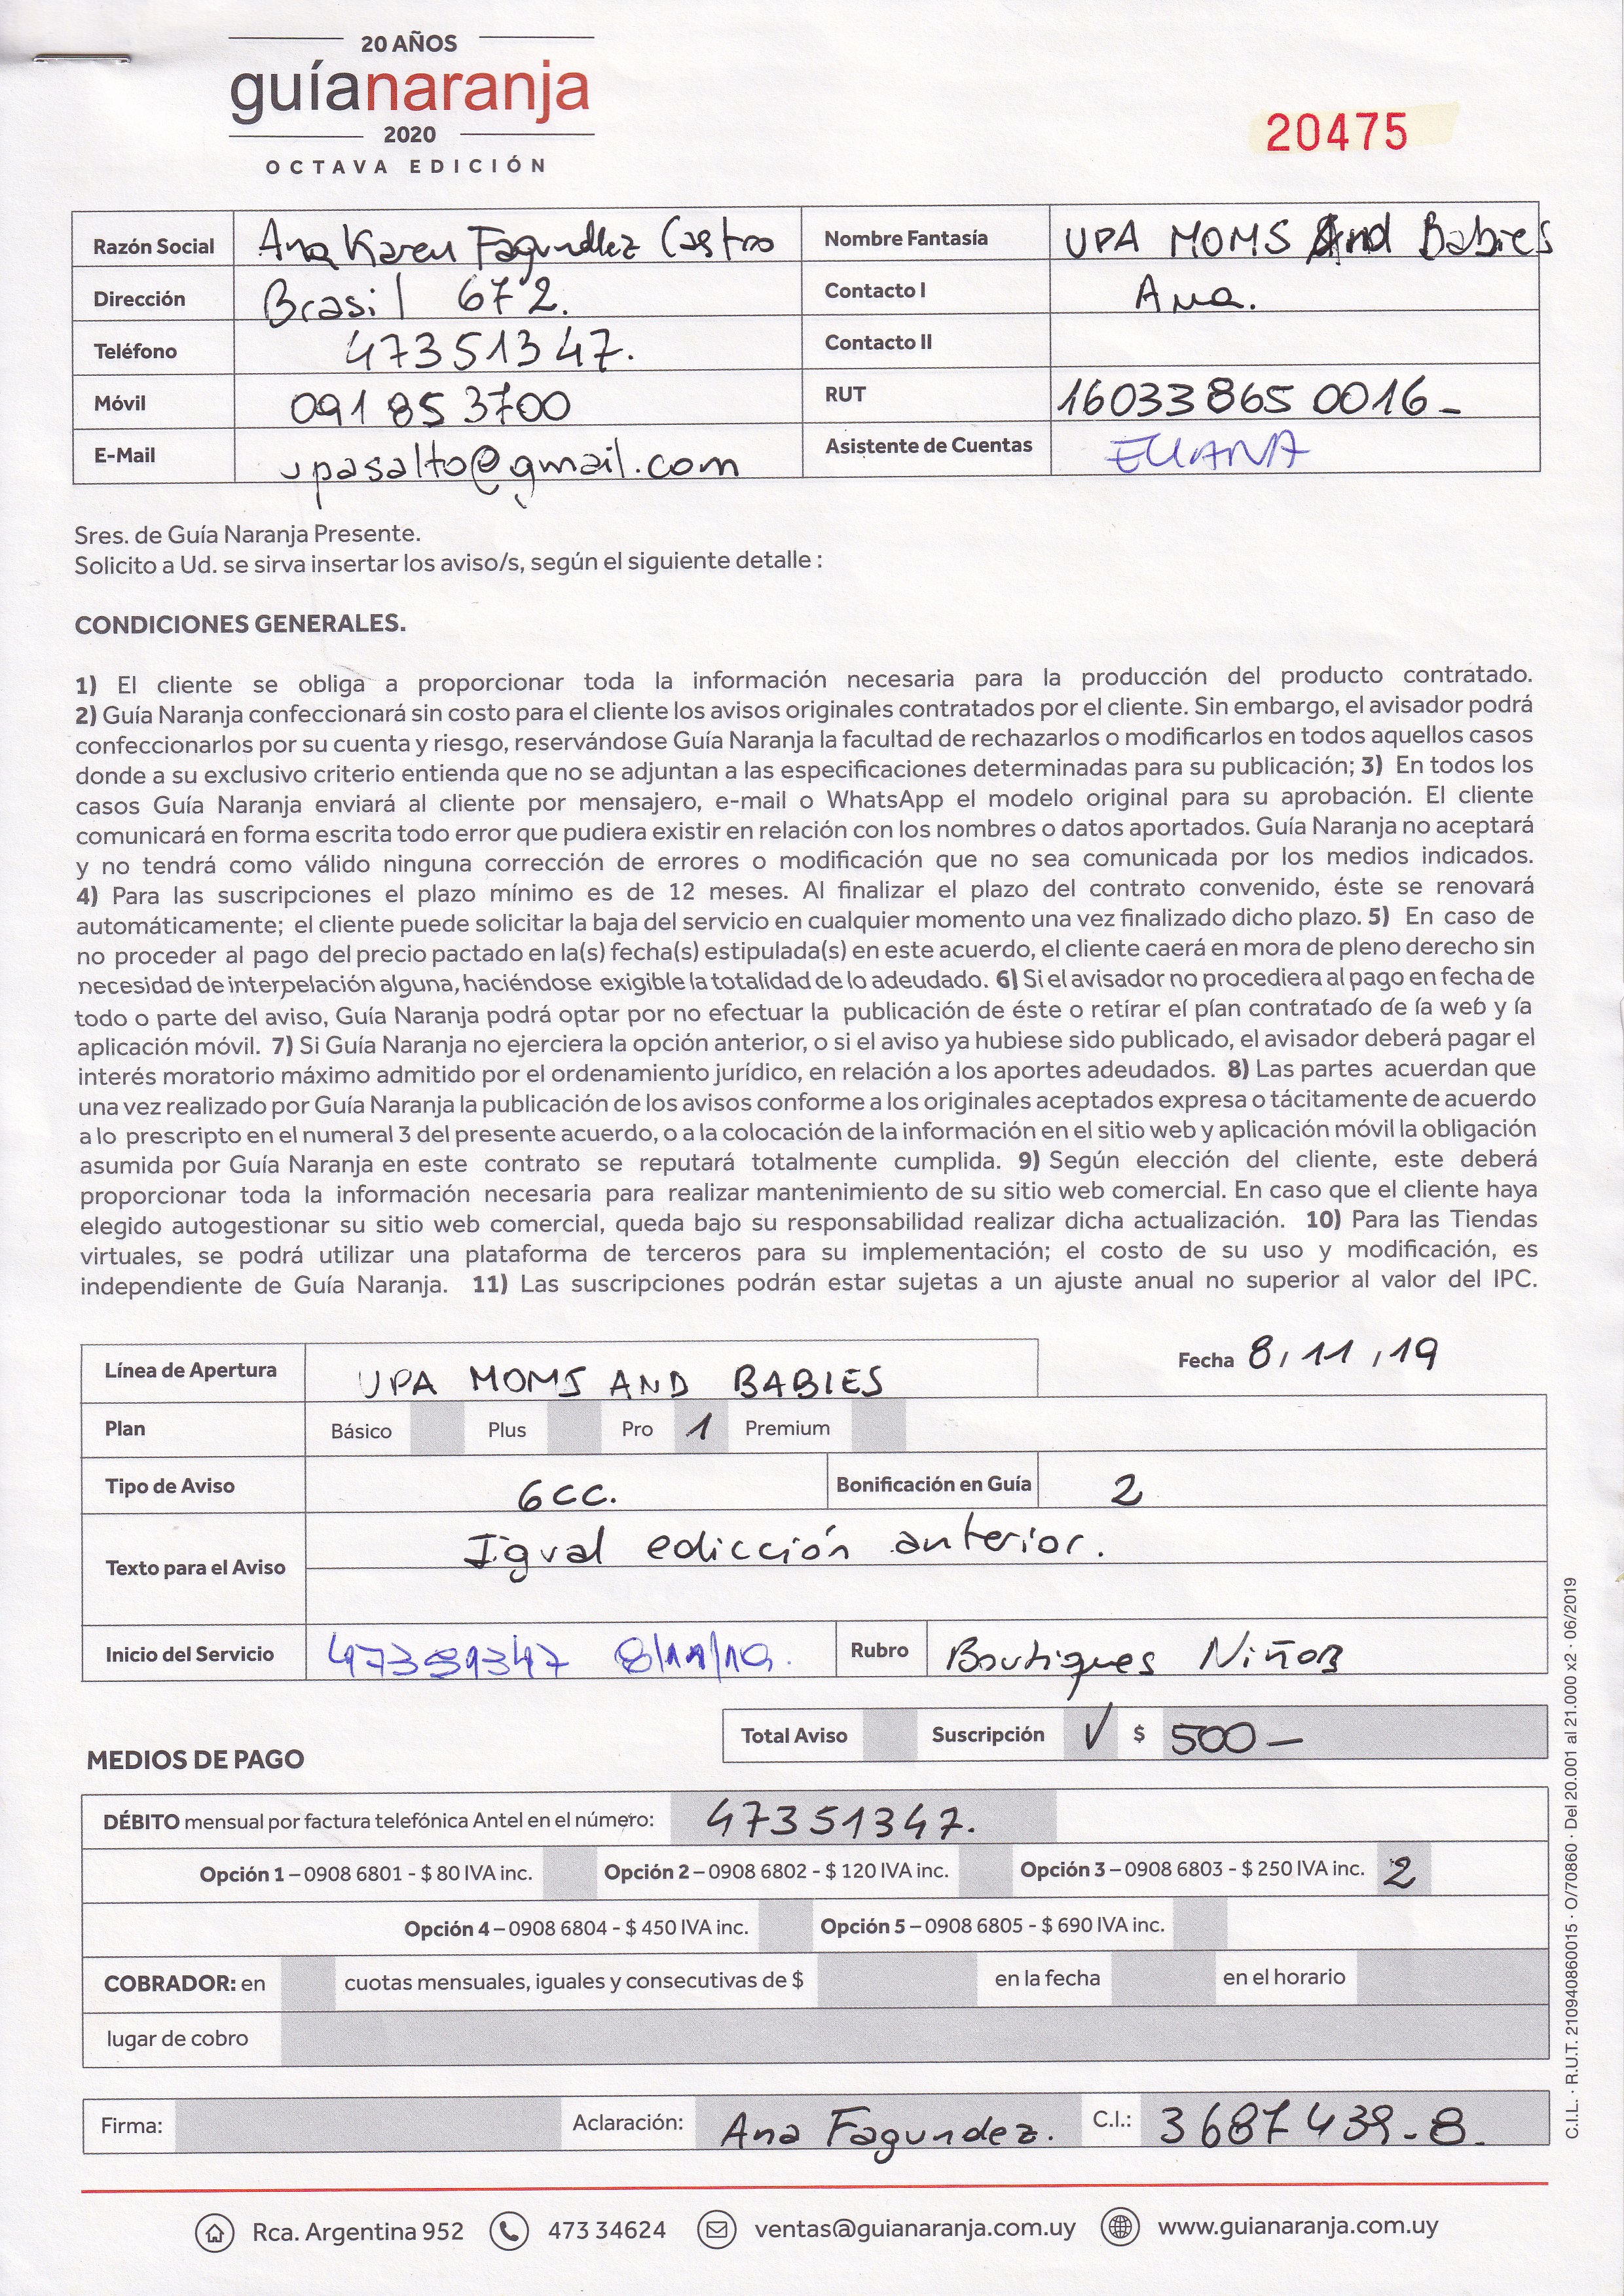 20 AÑOS
guíanaranja
2020
OCTAVA EDICIÓN
20475
Razón Social Ana Karen Fagundez Castro Nombre Fantasía UPA MOMS And Babies
Dirección Brasil 672. Contacto I Ana.
Teléfono 47351347. Contacto II
Móvil 091 853700 RUT 160338650016-
E-Mail upasalto@gmail.com Asistente de Cuentas ELIANA
Sres. de Guía Naranja Presente.
Solicito a Ud. se sirva insertar los aviso/s, según el siguiente detalle :
CONDICIONES GENERALES.
1) El cliente se obliga a proporcionar toda la información necesaria para la producción del producto contratado.
2) Guía Naranja confeccionará sin costo para el cliente los avisos originales contratados por el cliente. Sin embargo, el avisador podrá
confeccionarlos por su cuenta y riesgo, reservándose Guía Naranja la facultad de rechazarlos o modificarlos en todos aquellos casos
donde a su exclusivo criterio entienda que no se adjuntan a las especificaciones determinadas para su publicación; 3) En todos los
casos Guía Naranja enviará al cliente por mensajero, e-mail o WhatsApp el modelo original para su aprobación. El cliente
comunicará en forma escrita todo error que pudiera existir en relación con los nombres o datos aportados. Guía Naranja no aceptará
y no tendrá como válido ninguna corrección de errores o modificación que no sea comunicada por los medios indicados.
4) Para las suscripciones el plazo mínimo es de 12 meses. Al finalizar el plazo del contrato convenido, éste se renovará
automáticamente; el cliente puede solicitar la baja del servicio en cualquier momento una vez finalizado dicho plazo. 5) En caso de
no proceder al pago del precio pactado en la(s) fecha(s) estipulada(s) en este acuerdo, el cliente caerá en mora de pleno derecho sin
necesidad de interpelación alguna, haciéndose exigible la totalidad de lo adeudado. 6) Si el avisador no procediera al pago en fecha de
todo o parte del aviso, Guía Naranja podrá optar por no efectuar la publicación de éste o retirar el plan contratado de la web y la
aplicación móvil. 7) Si Guía Naranja no ejerciera la opción anterior, o si el aviso ya hubiese sido publicado, el avisador deberá pagar el
interés moratorio máximo admitido por el ordenamiento jurídico, en relación a los aportes adeudados. 8) Las partes acuerdan que
una vez realizado por Guía Naranja la publicación de los avisos conforme a los originales aceptados expresa o tácitamente de acuerdo
a lo prescripto en el numeral 3 del presente acuerdo, o a la colocación de la información en el sitio web y aplicación móvil la obligación
asumida por Guía Naranja en este contrato se reputará totalmente cumplida. 9) Según elección del cliente, este deberá
proporcionar toda la información necesaria para realizar mantenimiento de su sitio web comercial. En caso que el cliente haya
elegido autogestionar su sitio web comercial, queda bajo su responsabilidad realizar dicha actualización. 10) Para las Tiendas
virtuales, se podrá utilizar una plataforma de terceros para su implementación; el costo de su uso y modificación, es
independiente de Guía Naranja. 11) Las suscripciones podrán estar sujetas a un ajuste anual no superior al valor del IPC.
Línea de Apertura UPA MOMS AND BABIES Fecha 8/11/19
Plan Básico Plus Pro 1 Premium
Tipo de Aviso 6cc. Bonificación en Guía 2
Texto para el Aviso Igual edicción anterior.
Inicio del Servicio 47351347 8/11/19. Rubro Boutiques Niños
Total Aviso Suscripción ✓ $ 500 -
MEDIOS DE PAGO
DÉBITO mensual por factura telefónica Antel en el número: 47351347.
Opción 1 – 0908 6801 - $ 80 IVA inc. Opción 2 – 0908 6802 - $ 120 IVA inc. Opción 3 – 0908 6803 - $ 250 IVA inc. 2
Opción 4 – 0908 6804 - $ 450 IVA inc. Opción 5 – 0908 6805 - $ 690 IVA inc.
COBRADOR: en cuotas mensuales, iguales y consecutivas de $ en la fecha en el horario
lugar de cobro
Firma: Aclaración: Ana Fagundez. C.I.: 3687439-8.
Rca. Argentina 952 473 34624 ventas@guianaranja.com.uy www.guianaranja.com.uy
C.I.L. · R.U.T. 210940860015 · O/70860 · Del 20.001 al 21.000 x2 · 06/2019